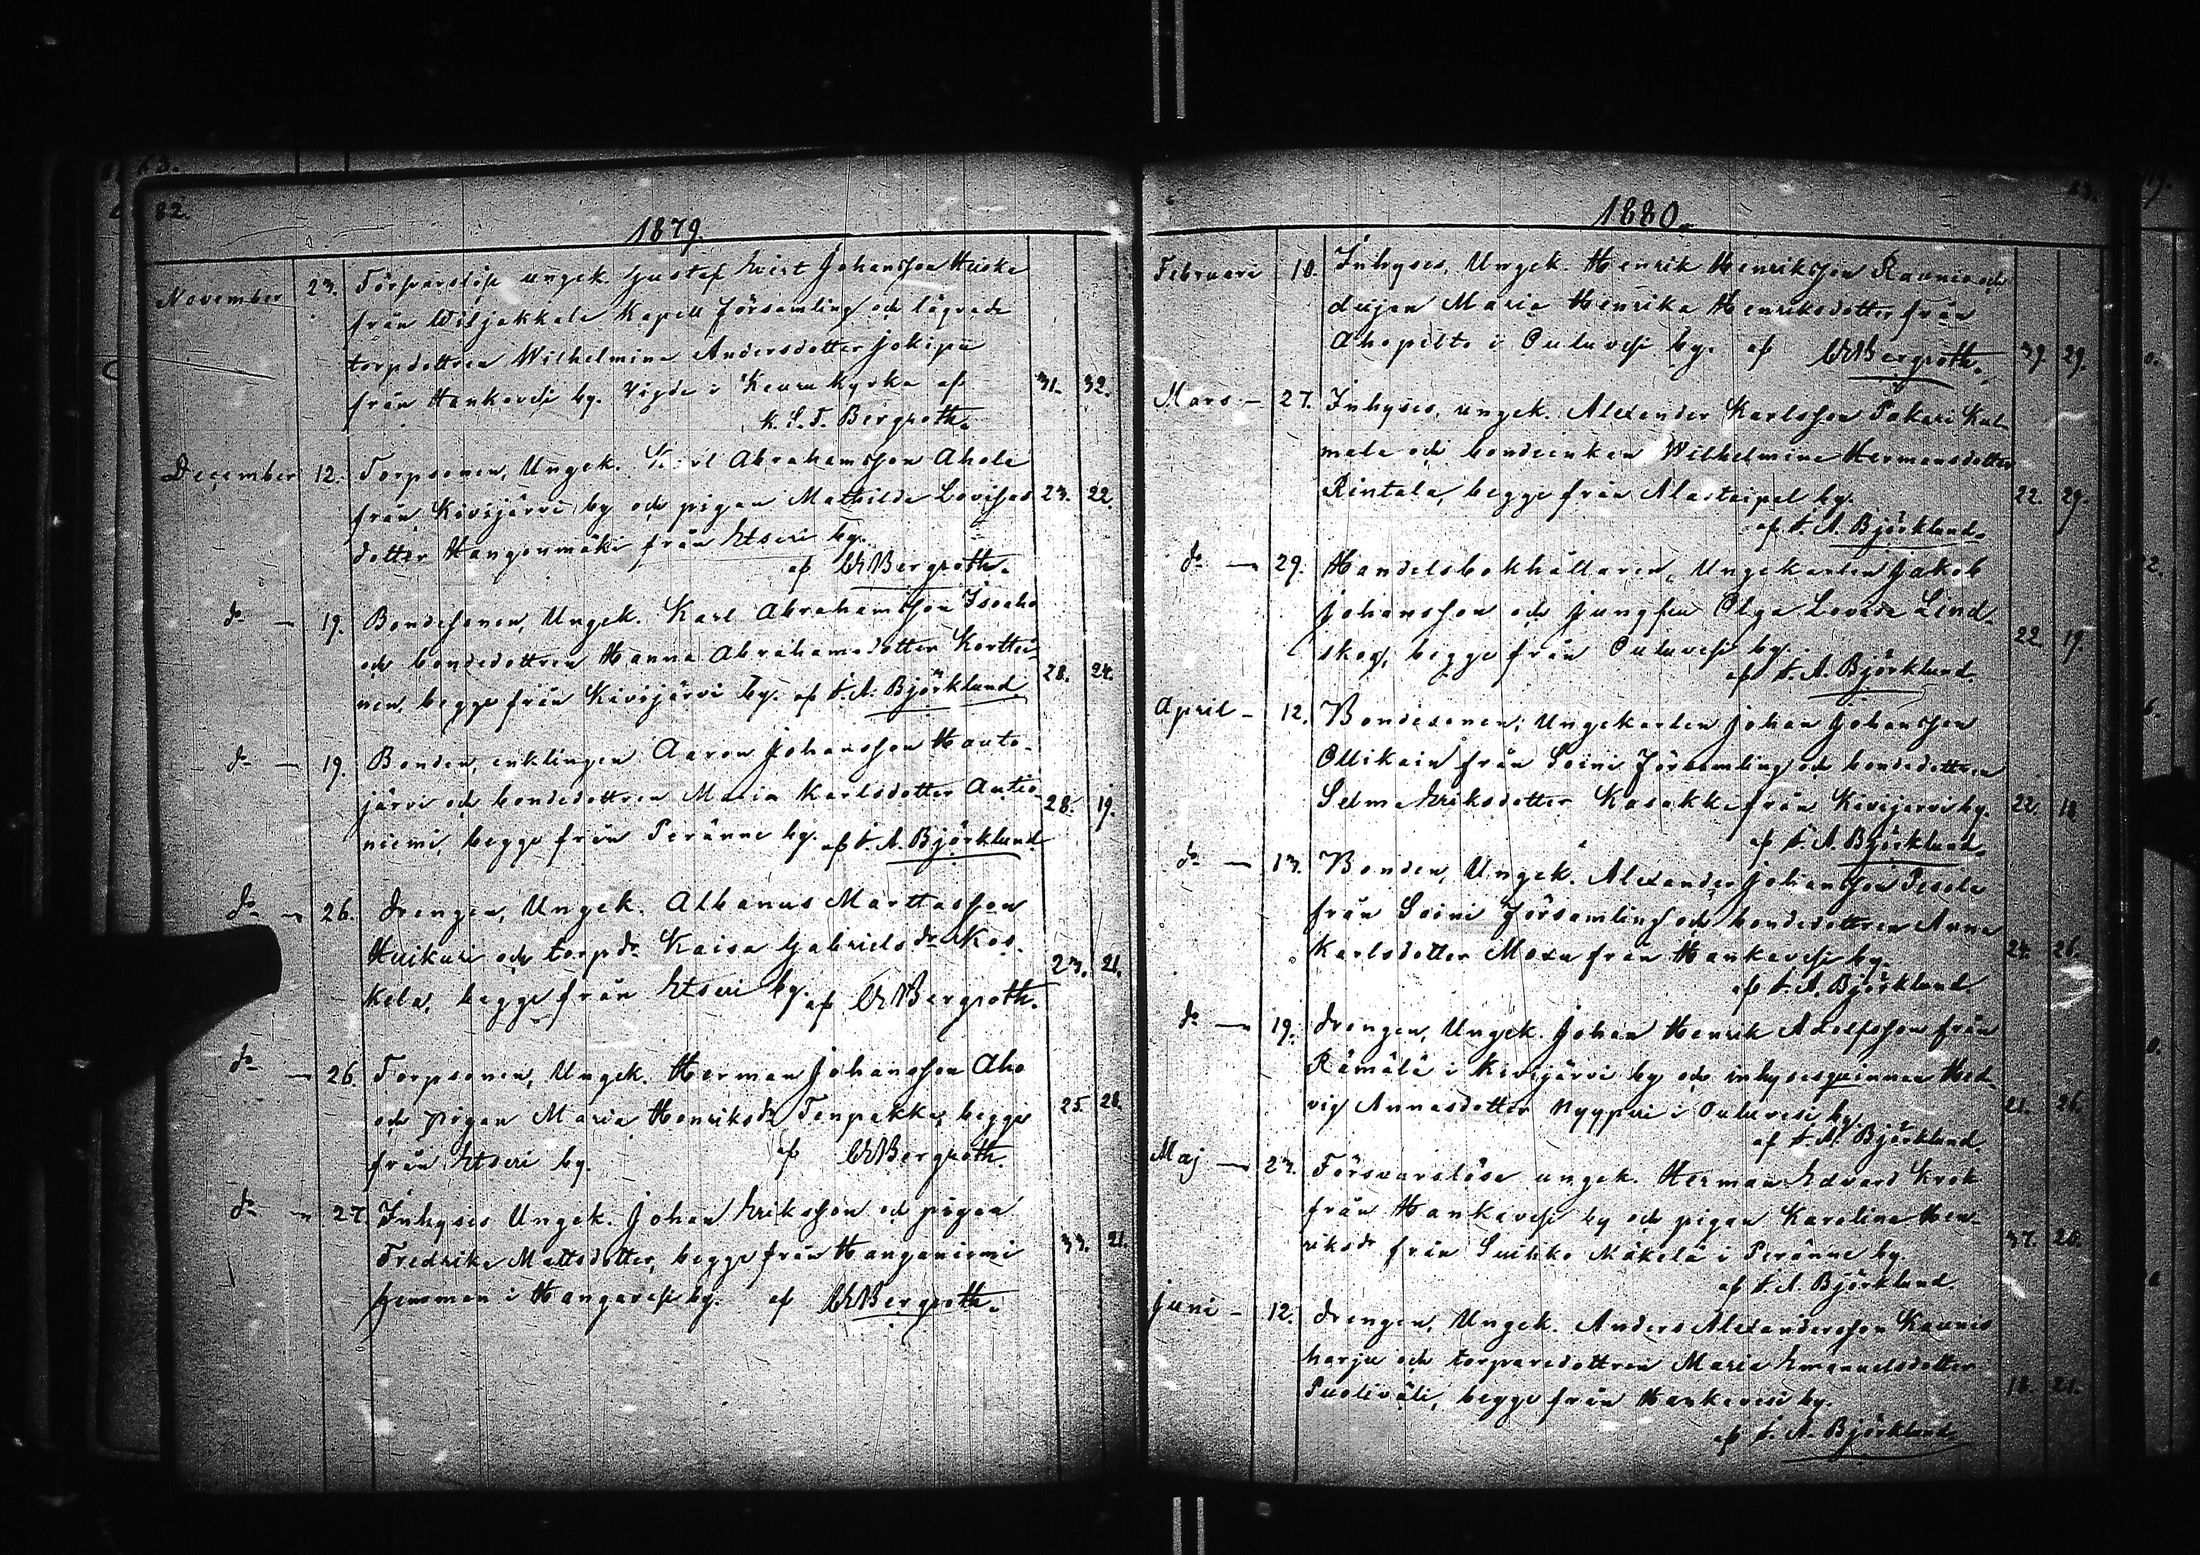 82.
1879.
November 23. Försvarslöse ungek. Gustaf Evert Johansson Huske
från Wiljakkala Kapell församling och lägrade
torpdottren Wilhelmina Andersdotter Jokipii
från Hankavesi by. Vigde i Keuru kyrka af 31. 32.
K. S. T. Bergroth.
December 12. Torpsonen, Ungek. Karl Abrahamsson Ahola
från Kivijärvi by och pigan Mathilda Lovisas 23. 22.
dotter Hangonmäki från Etseri by.
af Bergroth.
do 19. Bondesonen, Ungek. Karl Abrahamsson Isoaho
och bondedottren Hanna Abrahamsdotter Kortei-
nen, begge från Kivijärvi by. af A. Björklund 28. 24.
do 19. Bonden, enklingen Aaron Johansson Hauto-
järvi och bondedottren Maria Karlsdotter Autio-
niemi, begge från Peränne by. af A. Björklund 28. 19.
do 26. Drengen, Ungek. Albanus Mattasson
Huikuri och torpdr Kaisa Gabrielsdr Kos-
kela, begge från Etseri by. af Bergroth. 23. 21.
do 26. Torpsonen, Ungek. Herman Johansson Aho
och pigan Maria Henriksdr Tenpakka, begge 25. 28.
från Etseri by. af Bergroth.
do 27. Inhyses Ungek. Johan Eriksson och pigan
Fredrika Mattsdotter, begge från Hanganiemi 33. 21.
hemman i Hangavesi by. af Bergroth.
1880.
Februari 10. Inhyses, Ungek. Henrik Henriksson Raunio och
deijan Maria Henrika Henriksdotter från
Ahopelto i Ouluvesi by. af Bergroth. 39. 29.
Mars 27. Inhyses, ungek. Alexander Karlsson Pokari Kul
mala och bondeenkan Wilhelmina Hermansdotter
Rintala, begge från Alastaipal by. 22. 29.
af A. Björklund.
do 29. Handelsbokhållaren, Ungekarlen Jakob
Johansson och jungfru Olga Lovisa Lind-
skog, begge från Ouluvesi by. 22. 19.
af A. Björklund.
April 12. Bondesonen, Ungekarlen Johan Johansson
Ollikain från Soini församling och bondedottren
Selma Eriksdotter Kasakka från Kivijervi by. 22. 18
af A. Björklund.
do 13. Bonden, Ungek. Alexander Johansson Pesola
från Soini församling och bondedottren Anna
Karlsdotter Moxu från Hankavesi by. 24. 26.
af A. Björklund.
do 19. Drengen, Ungek. Johan Henrik Adolfsson från
Rämälä i Kivijärvi by och inhysesqvinnan Hed-
vig Annasdotter Nyppui i Ouluvesi by. 21. 26.
af A. Björklund.
Maj 23. Försvarslöse ungek. Herman Edvard Krok
från Hankavesi by och pigan Karolina Hen-
riksdr från Suikko Mäkelä i Peränne by. 37. 20.
af A. Björklund.
Juni 12. Drengen, Ungek. Anders Alexandersson Kaunis
harju och torparedottren Maria Emanuelsdotter
Puoliväli, begge från Hankavesi by. 18. 21.
af A. Björklund.